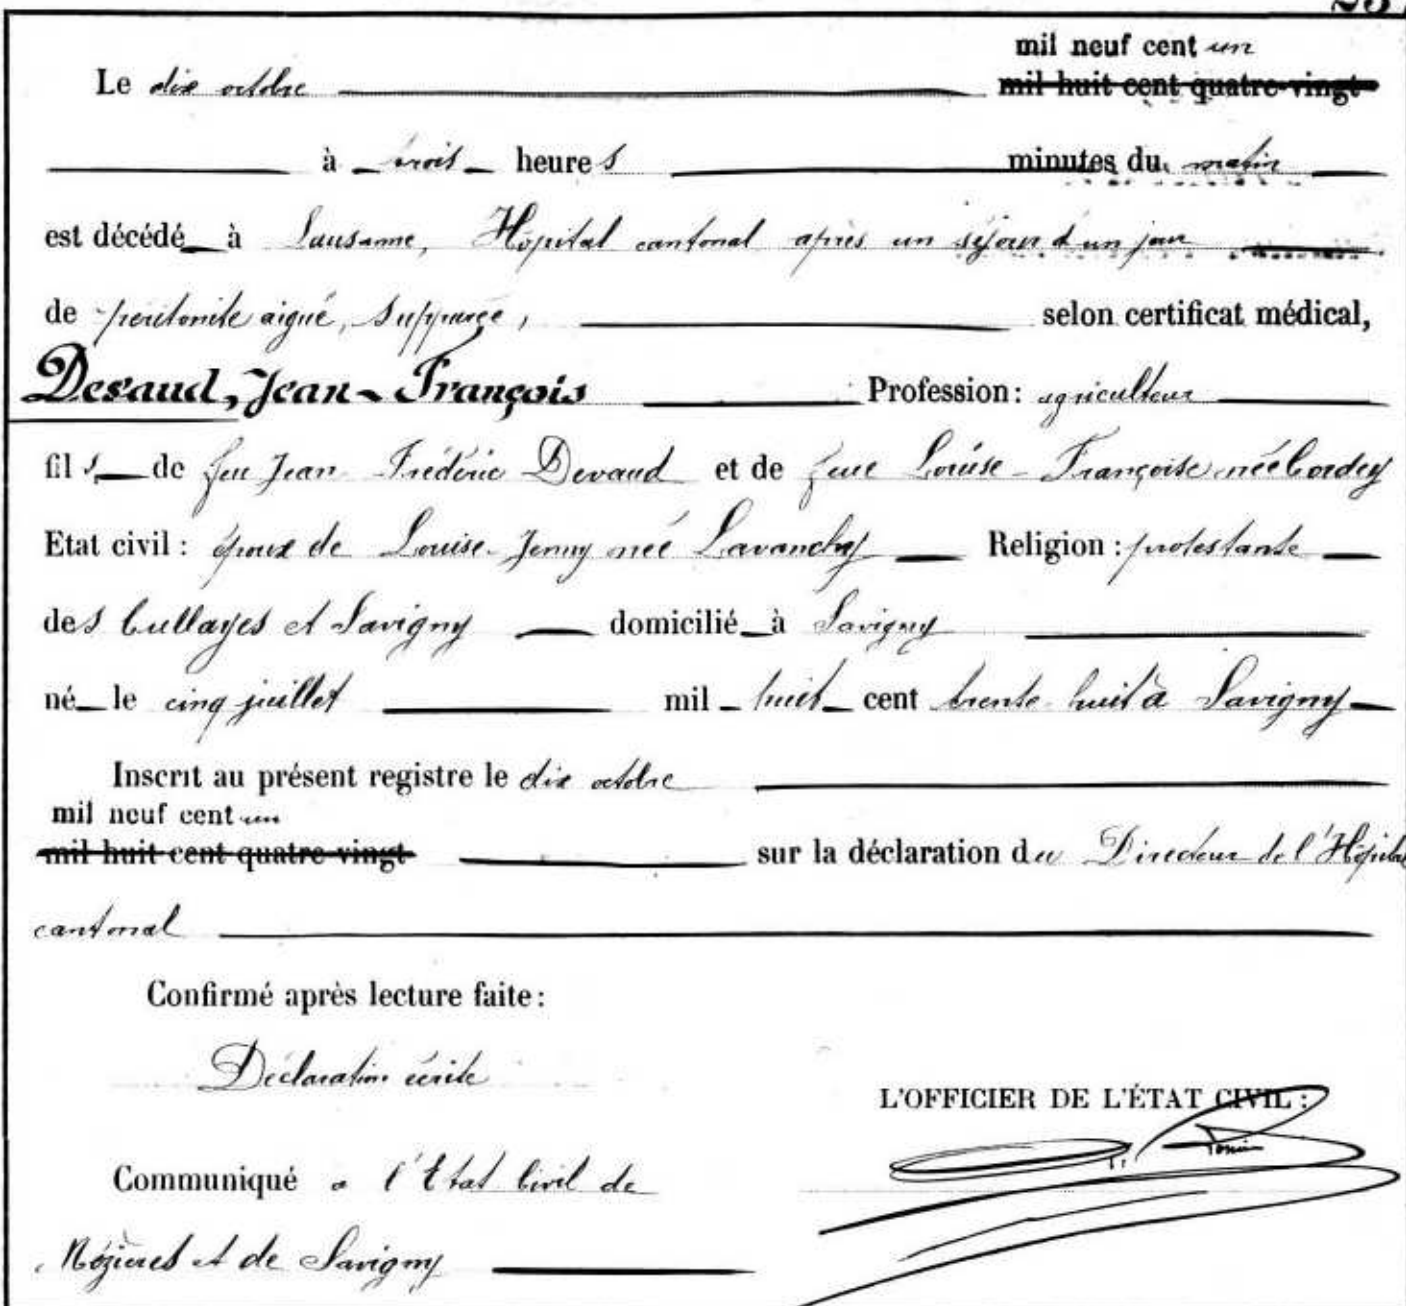 mil neuf cent un
Le dix octobre mil huit cent quatre-vingt
à trois heures minutes du matin
est décédé à Lausanne, Hôpital cantonal après un séjour d'un jour
de péritonite aiguë, suppurée, selon certificat médical,
Devaud, Jean-François Profession: agriculteur
fils de feu Jean Frédéric Devaud et de feue Louise-Françoise née Cordey
Etat civil: époux de Louise-Jenny née Lavanchy Religion: protestante
des Cullayes et Savigny domicilié à Savigny
né le cinq juillet mil huit cent trente huit à Savigny
Inscrit au présent registre le dix octobre
mil neuf cent un
mil huit cent quatre-vingt sur la déclaration du Directeur de l'Hôpital
cantonal
Confirmé après lecture faite:
Déclaration écrite
L'OFFICIER DE L'ÉTAT CIVIL:
Communiqué à l'Etat Civil de
Mézières et de Savigny